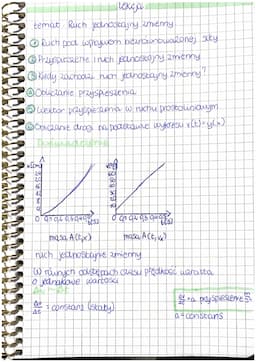 Lekcja
temat: Ruch jednostajny zmienny
① Ruch pod wpływem niezrównoważonej siły
② Przyspieszenie i ruch jednostajny zmienny
③ Kiedy zachodzi ruch jednostajny zmienny?
④ Obliczanie przyspieszenia
⑤ Wektor przyspieszenia w ruchu prostoliniowym
⑥ Obliczanie drogi na podstawie wykresu
masa A(t,x) masa A(t,v)
ruch jednostajnie zmienny
W równych odstępach czasu prędkość wzrasta
o jednakowe wartości
Δv/Δt = constans (stały)
Δv/Δt = a przyspieszenie
a = constans